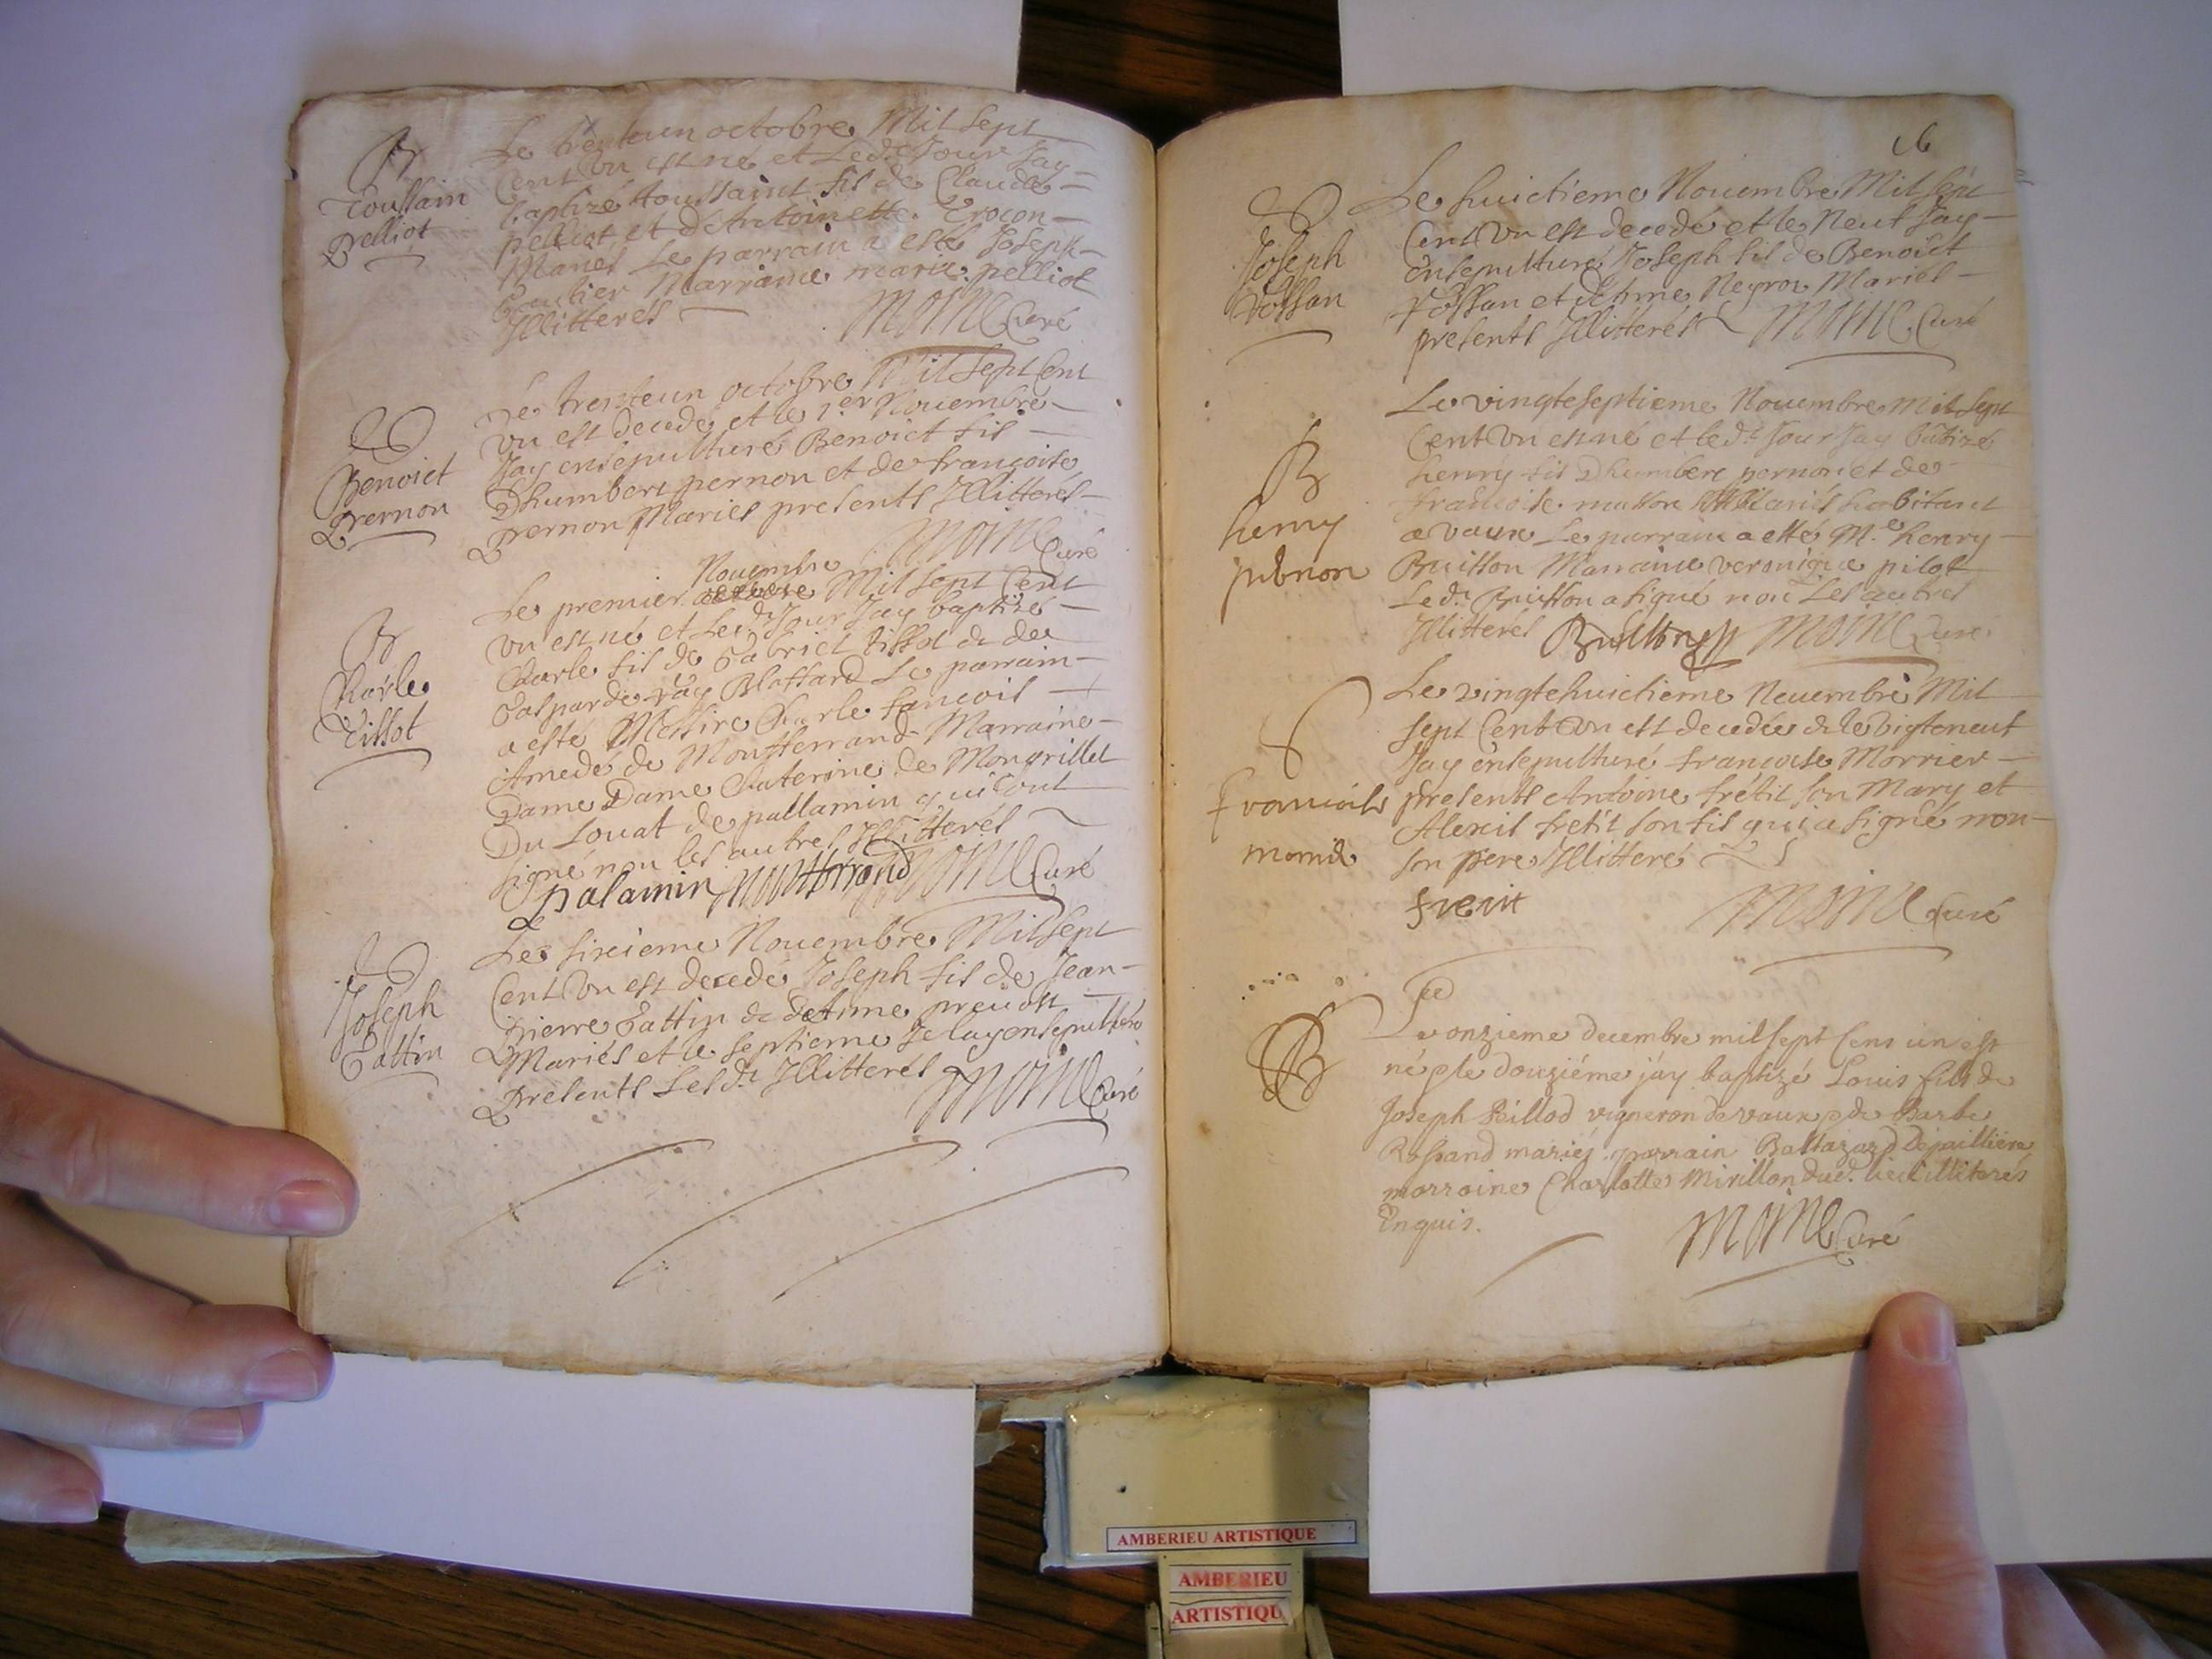 B
Toussain
pelliot
Le trenteun octobre Mil sept
Cent Vn est né et Led.t Jour Jay
baptizé toussaint fil de Claude
pelliot et dAntoinette Trocon
Mariés Le parrain a esté Joseph
Gautier Marraine marie pelliot
Jllitterés
Moine Curé
D
Benoict
pernon
Le trenteun octobre Mil sept Cent
vn est decedé et le 1.er Nouembre
Jay ensepulturé Benoict fil
Dhumbert pernon et de francoise
pernon Mariés presents Jllitterés
Moine Curé
B
Charle
Tissot
Nouembre
Le premier octobre Mil sept Cent
vn est né et Led.t Jour Jay baptizé
Charle fil de Gabriel tissot & de
Gasparde Blattard Le parrain
a esté Messire Charle francois
Amede de Montferrand Marraine
Dame Dame Chaterine de Mongrillet
Du Louat de pallamin qui ont
signé non les autres Jllitterés
palamin Montferrand Moine Curé
D
Joseph
Tattin
Le sixieme Nouembre Mil sept
Cent Vn est decedé Joseph fil de Jean
pierre Tattin & dEtime preuost
Mariés et le septieme Je lay ensepulturé
presents Lesd.t Jllitterés
Moine Curé
16
D
Joseph
Vossan
Le huictieme Nouembre Mil sept
Cent Vn est decedé et le Neuf Jay
ensepulturé Joseph fil de Benoict
Vossan et dEtime Neyron Mariés
presents Jllitterés Moine Curé
B
henry
pernon
Le vingteseptieme Nouembre Mil sept
Cent Vn est né et led.t Jour Jay batizé
henry fil Dhumbert pernon et de
francoise Mariés habitant
a vaux Le parrain a esté M.e henry
Buisson Marraine veronique pilot
Led.t Buisson a signé non Les autres
Jllitterés Buisson Moine Curé
francoise
Le vingtehuictieme Nouembre Mil
sept Cent Vn est decedée & le vigteneuf
Jay ensepulturé francoise Morrier
presents Antoine fretit son Mary et
Alexis fretit son fil qui a signé non
son pere Jllitteré
fretit
Moine Curé
B
Le onzieme decembre mil sept Cens un est
né & le douziéme j'ay baptizé Louis fils de
Joseph Peillod vigneron de vaux & de Barbe
Rossand mariés parrain Baltazard Dejailliere
marraine Charlotte Mirillon dud. lieu illiterés
Enquis.
Moine Curé
AMBERIEU ARTISTIQUE
AMBERIEU
ARTISTIQU